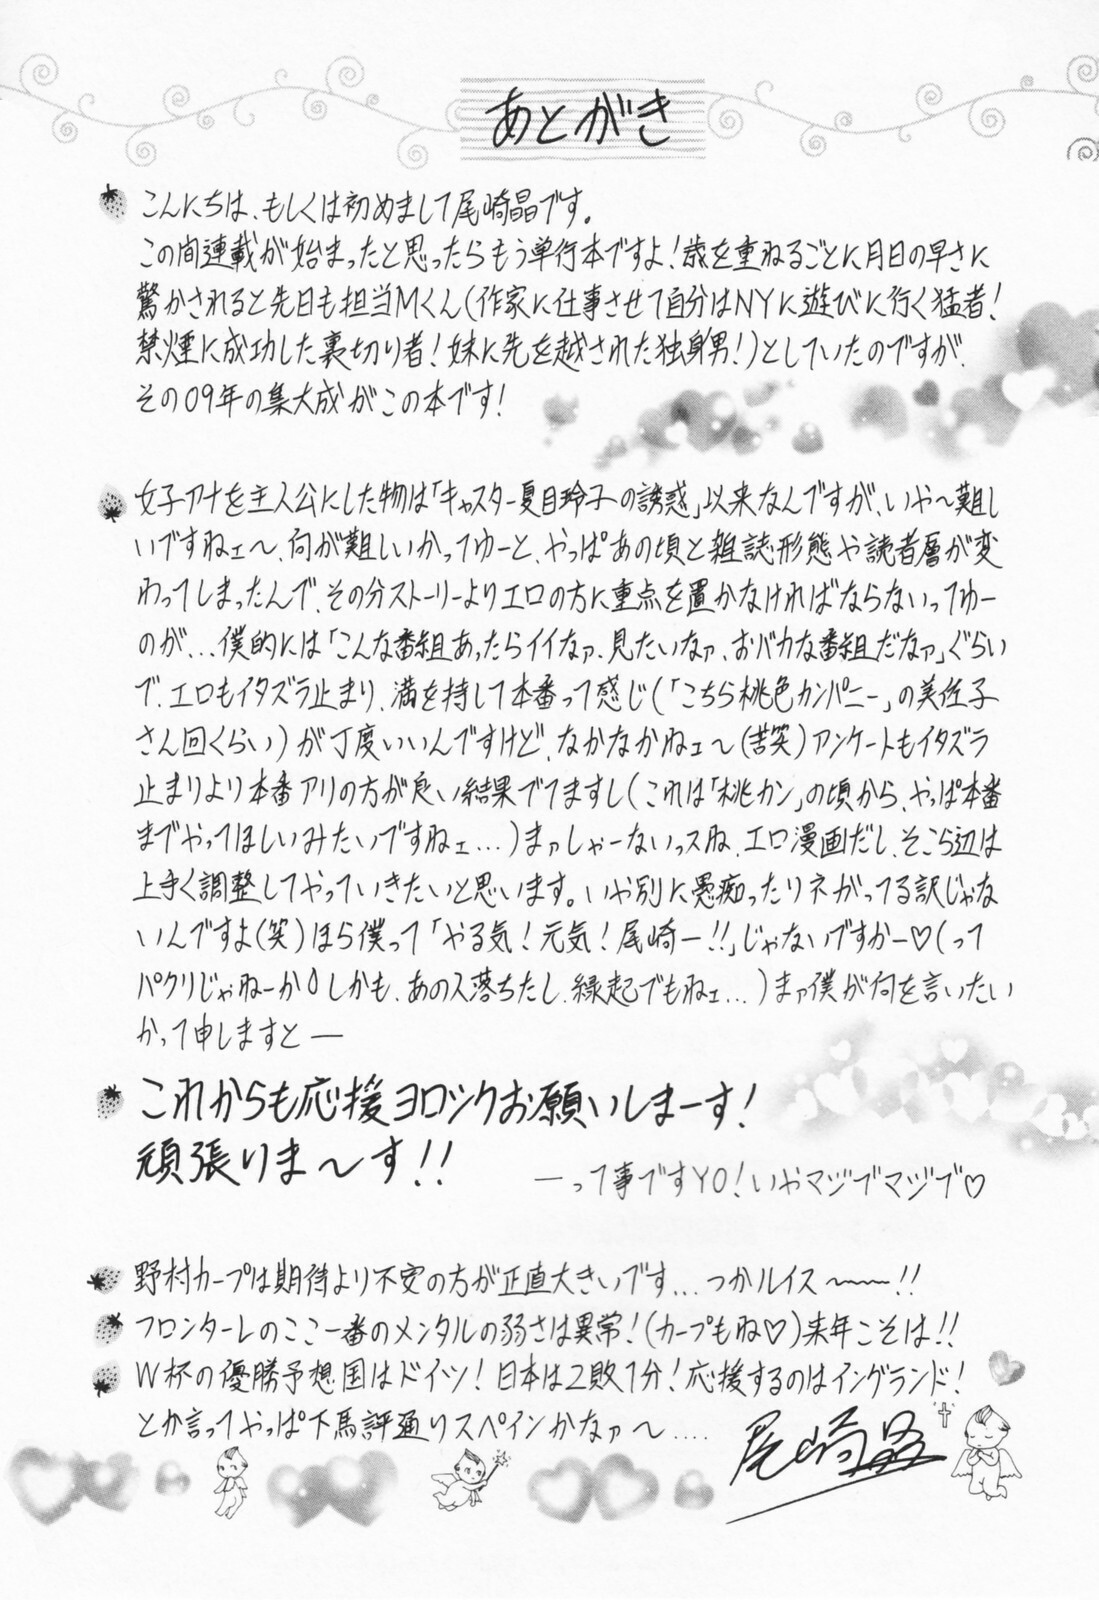 あとがき
こんにちは、もしくは初めまして尾崎晶です。
この間連載が始まったと思ったらもう単行本ですよ！歳を重ねるごとに月日の早さに
驚かされると先日も担当Mくん(作家に仕事させて自分はNYに遊びに行く猛者！
禁煙に成功した裏切り者！妹に先を越された独身男！)としていたのですが、
その09年の集大成がこの本です！
女子アナを主人公にした物は「キャスター夏目玲子の誘惑」以来なんですが、いや〜難し
いですねェ〜、何が難しいかってゆーと、やっぱあの頃と雑誌形態や読者層が変
わってしまったんで、その分ストーリーよりエロの方に重点を置かなければならないってゆー
のが…僕的には「こんな番組あったらイイなァ、見たいなァ、おバカな番組だなァ」ぐらい
で、エロもイタズラ止まり、満を持して本番って感じ(「こちら桃色カンパニー」の美佐子
さん回くらい)が丁度いいんですけど、なかなかねェ〜(苦笑)アンケートもイタズラ
止まりより本番アリの方が良い結果でてますし(これは「桃カン」の頃から、やっぱ本番
までやってほしいみたいですねェ…)まァしゃーないっスね、エロ漫画だし、そこら辺は
上手く調整してやっていきたいと思います。いや別に愚痴ったりネガってる訳じゃな
いんですよ(笑)ほら僕って「やる気！元気！尾崎ー！！」じゃないですかー♡(って
パクリじゃねーか しかも、あの人落ちたし、縁起でもねェ…)まァ僕が何を言いたい
かって申しますと―
これからも応援ヨロシクお願いしまーす！
頑張りま〜す！！
―って事ですYO！いやマジでマジで♡
野村カープは期待より不安の方が正直大きいです…つかルイス〜〜！！
フロンターレのここ一番のメンタルの弱さは異常！(カープもね♡)来年こそは！！
W杯の優勝予想国はドイツ！日本は2敗1分！応援するのはイングランド！
とか言ってやっぱ下馬評通りスペインかなァ〜….
尾崎晶